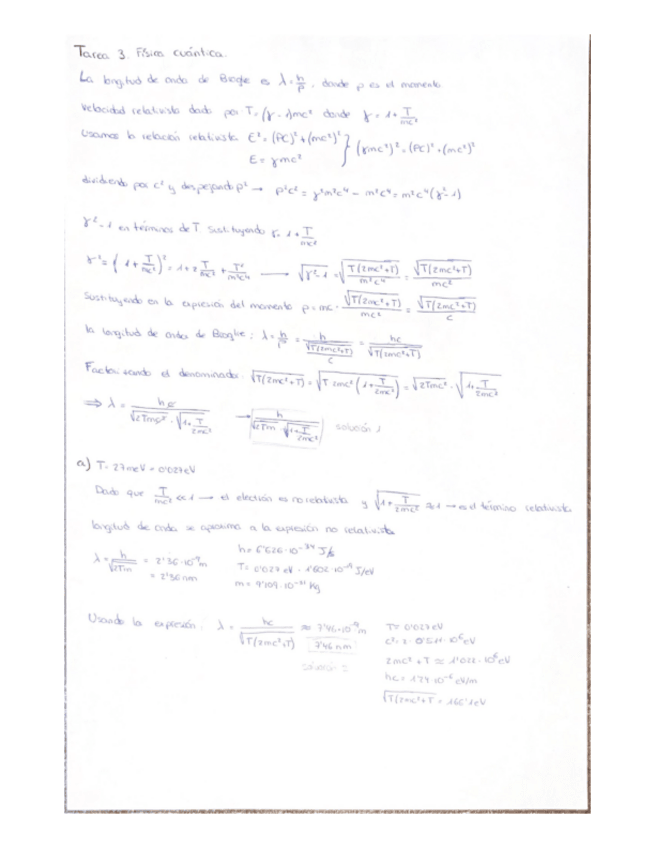 Tarea 3. Física cuántica.
La longitud de onda de Broglie es λ = h/p, donde p es el momento
velocidad relativista dado por T = (γ - 1)mc² donde γ = 1 + T/mc²
Usamos la relación relativista E² = (pc)² + (mc²)² } (γmc²)² = (pc)² + (mc²)²
E = γmc²
dividiendo por c² y despejando p² → p²c² = γ²m²c⁴ - m²c⁴ = m²c⁴(γ² - 1)
γ² - 1 en términos de T sustituyendo γ = 1 + T/mc²
γ² = (1 + T/mc²)² = 1 + 2 T/mc² + T²/m²c⁴ → √(γ² - 1) = √(T(2mc²+T)/m²c⁴) = √(T(2mc²+T))/mc²
Sustituyendo en la expresión del momento p = mc · √(T(2mc²+T))/mc² = √(T(2mc²+T))/c
la longitud de onda de Broglie: λ = h/p = h/(√(T(2mc²+T))/c) = hc/√(T(2mc²+T))
Factorizando el denominador. √(T(2mc²+T)) = √(T 2mc² (1 + T/2mc²)) = √(2Tmc²) · √(1 + T/2mc²)
⇒ λ = hc/(√(2Tmc²) · √(1 + T/2mc²)) → h/(√(2Tm) · √(1 + T/2mc²)) solución 1
a) T = 27meV = 0'027eV
Dado que T/mc² ≪ 1 → el electrón es no relativista y √(1 + T/2mc²) ≈ 1 → es el término relativista
longitud de onda se aproxima a la expresión no relativista
λ = h/√(2Tm) = 2'36·10⁻⁹ m h = 6'626·10⁻³⁴ J/s
= 2'36 nm T = 0'027 eV · 1'602·10⁻¹⁹ J/eV
m = 9'109·10⁻³¹ kg
Usando la expresión: λ = hc/√(T(2mc²+T)) ≈ 7'46·10⁻⁹ m T = 0'027eV
7'46 nm
solución 2
2mc² + T ≈ 1'022·10⁶ eV
hc = 1'24·10⁻⁶ eV/m
√(T(2mc²+T)) = 166'1eV